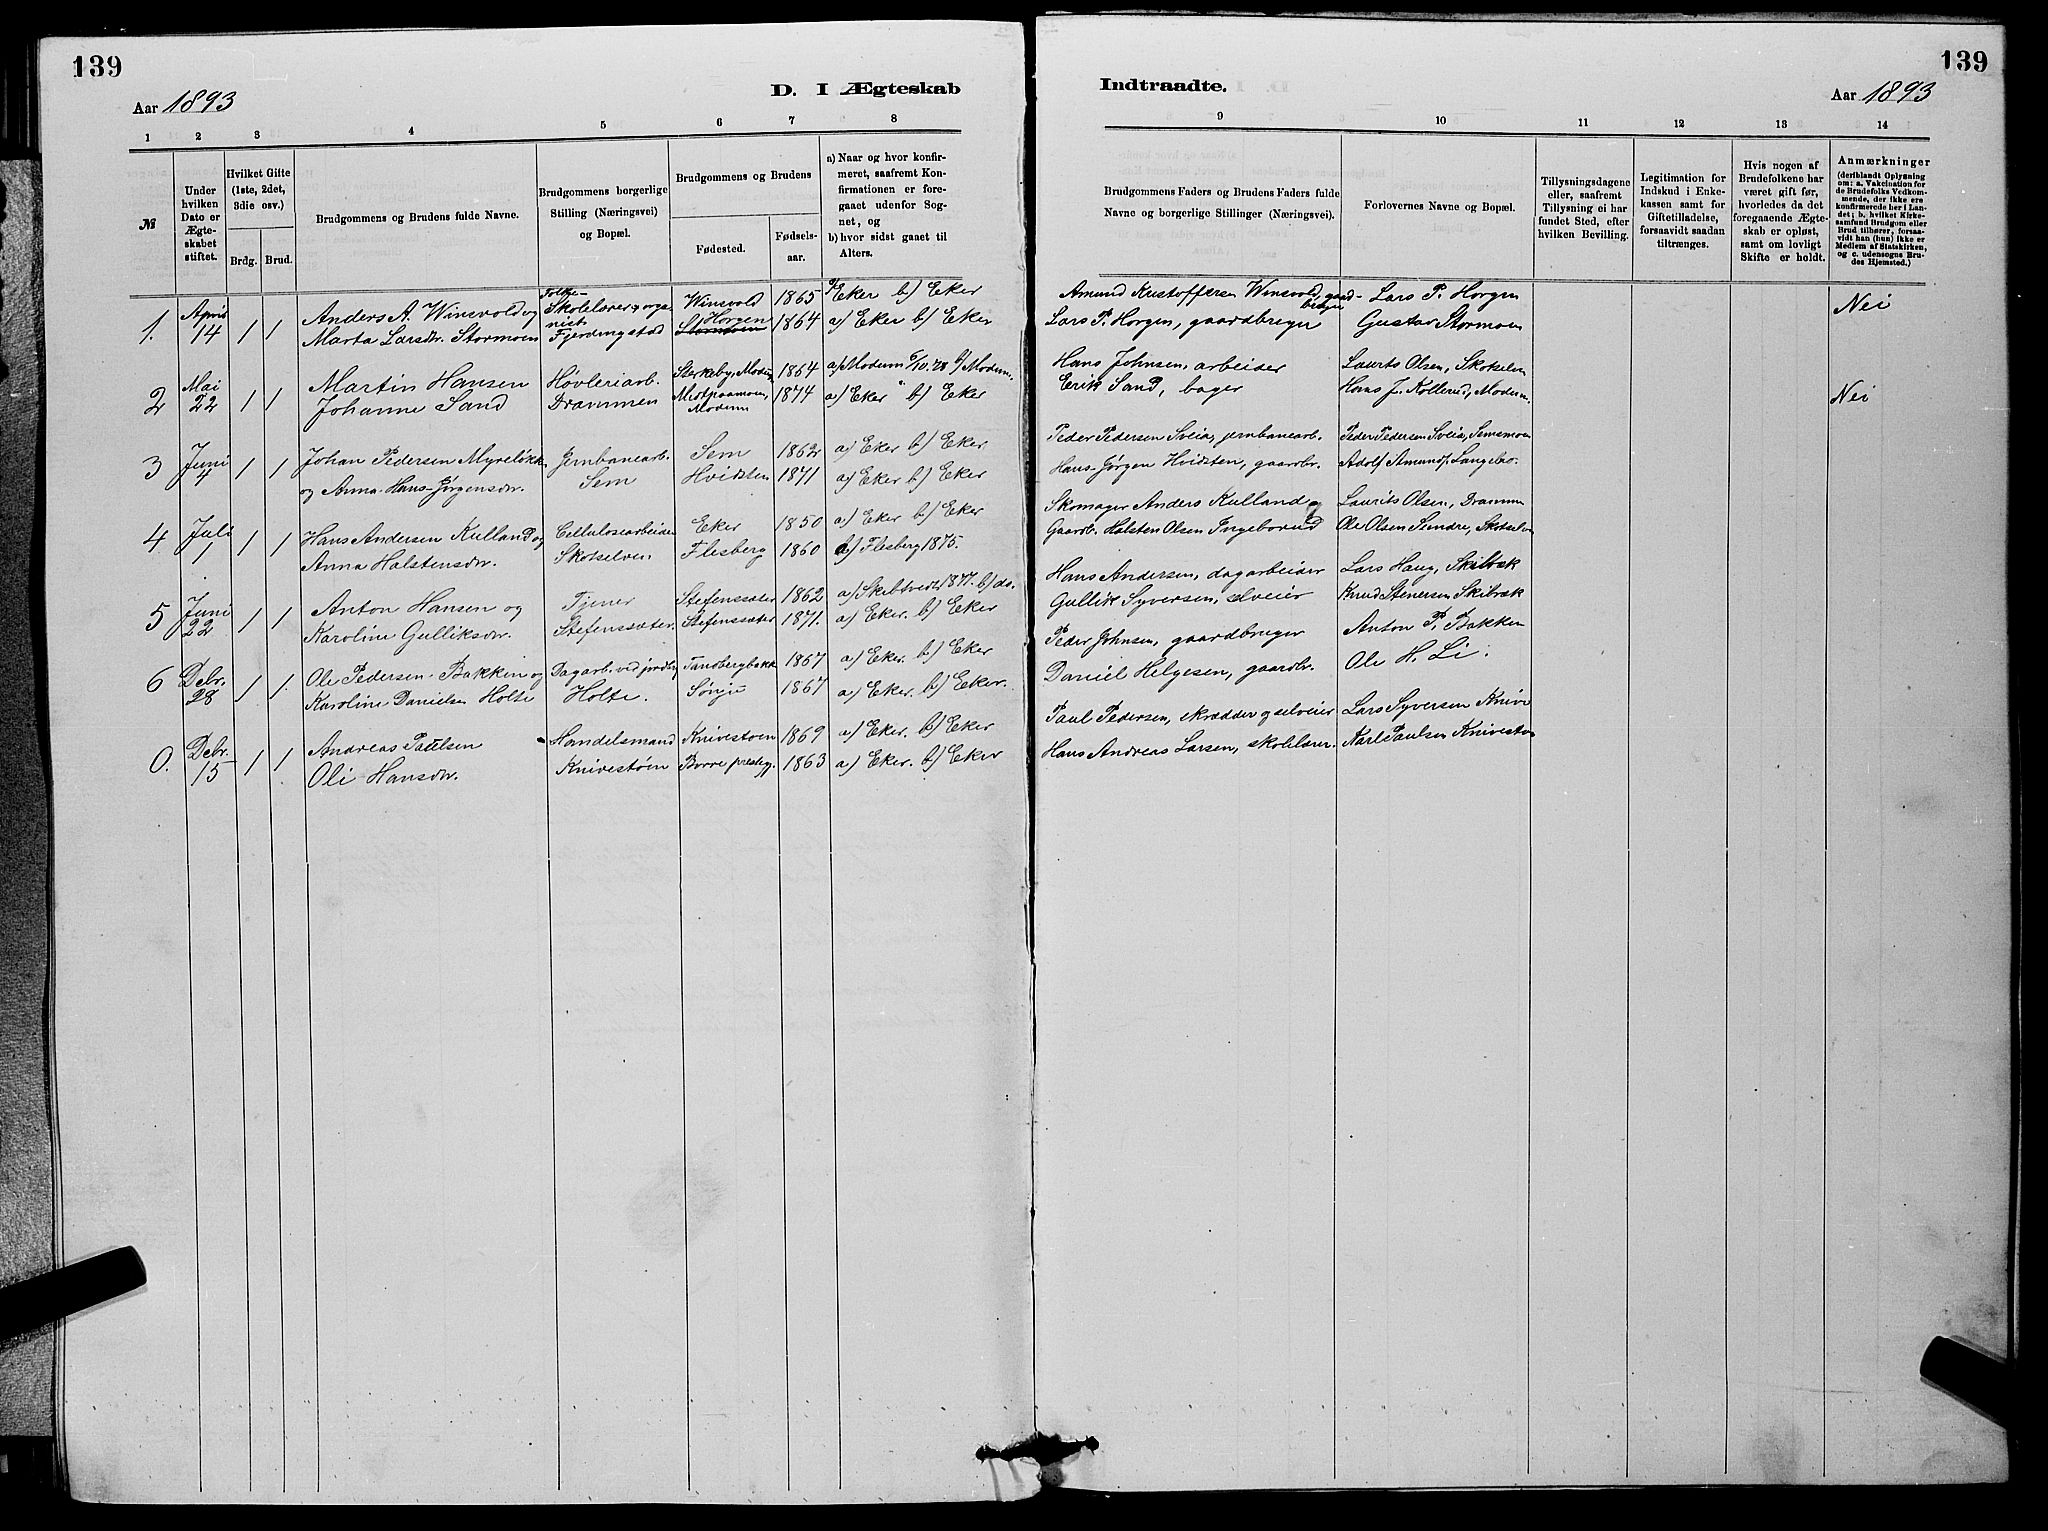 139
Aar 1893
D. I Ægteskab
1 2 3 4 5 6 7 8
№
Under hvilken Dato er Ægteskabet stiftet.
Hvilket Gifte (1ste, 2det, 3die osv.)
Brdg. Brud.
Brudgommens og Brudens fulde Navne.
Brudgommens borgerlige Stilling (Næringsvei) og Bopæl.
Brudgommens og Brudens
Fødested.
Fødselsaar.
a) Naar og hvor konfirmeret, saafremt Konfirmationen er foregaaet udenfor Sognet, og
b) hvor sidst gaaet til Alters.
1. April 14 1 1 Anders A. Winsvold og Folkeskolelærer og organist Winsvold 1865 a) Eker b) Eker
Marta Larsdr. Stormoen Fjerdingstad Horgen Stormoen 1864 a) Eker b) Eker
2 Mai 22 1 1 Martin Hansen Høvleriarb. Sterkeby, Modum 1864 a) Modum 6/10.78 b) Modum.
Johanne Sand Drammen Modum 1874 a) Eker b) Eker
3 Juni 4 1 1 Johan Pedersen Myreløkk Jernbanearb. Sem 1862 a) Eker b) Eker
og Anna Hans-Jørgensdr. Sem Hvidsten 1871 a) Eker b) Eker
4 Juli 1 1 1 Hans Andersen Kulland og Cellulosearbeider Eker 1850 a) Eker b) Eker
Anna Halstensdr. Skotselven Flesberg 1860 b) Flesberg 1875.
5 Juni 22 1 1 Anton Hansen og Tjener Stefenssæter 1862 a) Skibtvedt 1877. b) ds.
Karoline Gulliksdr. Stefenssæter. Stefenssæter 1871. a) Eker. b) Eker
6 Debr. 28 1 1 Ole Pedersen Bakken og Dagarb. ved jordbr. Tandbergbakk 1867 a) Eker. b) Eker
Karoline Danielsen Holte Holte. Sønju 1867 a) Eker. b) Eker.
0. Debr. 15 1 1 Andreas Paulsen Handelsmand Knivestøen 1869 a) Eker. b) Eker
Oli Hansdr. Knivestøen Borre prestg. 1863 a) Eker. b) Eker
139
Indtraadte.
Aar 1893
9 10 11 12 13 14
Brudgommens Faders og Brudens Faders fulde Navne og borgerlige Stillinger (Næringsvei).
Forlovernes Navne og Bopæl.
Tillysningsdagene eller, saafremt Tillysning ei har fundet Sted, efter hvilken Bevilling.
Legitimation for Indskud i Enkekassen samt for Giftetilladelse, forsaavidt saadan tiltrænges.
Hvis nogen af Brudefolkene har været gift før, hvorledes da det foregaaende Ægteskab er opløst, samt om lovligt Skifte er holdt.
Anmærkninger (deriblandt Oplysning om: a. Vakcination for de Brudefolks Vedkommende, der ikke ere konfirmerede her i Landet; b. hvilket Kirkesamfund Brudgom eller Brud tilhører, forsaavidt han (hun) ikke er Medlem af Statskirken, og c. udensogns Brudes Hjemsted.)
Amund Kristoffersen Winsvold, gaardbruger Lars P. Horgen Nei
Lars P. Horgen, gaardbruger Gustav Stormoen
Hans Johnsen, arbeider Laurits Olsen, Skotselven
Erik Sand, bager Hans J. Kollerud, Modum. Nei
Peder Pedersen Sveia, jernbanearb. Peder Pedersen Sveia, Semsmoen
Hans-Jørgen Hvidsten, gaardbr. Adolf Amunds. Langebro.
Skomager Anders Kulland og Laurits Olsen, Drammen
Gaardb. Halsten Olsen Ingeborud Ole Olsen Sundre, Skotselven
Hans Andersen, dagarbeider Lars Haug, Skilbræk
Gullik Syversen, selveier Knud Stenersen Skibræk
Peder Johnsen, gaardbruger Anton P. Bakken
Daniel Helgesen, gaardbr. Ole H. Li.
Paul Pedersen, skrædder og selveier Lars Syversen Knive
Hans Andreas Larsen, skolelærer. Karl Paulsen Knivestøen